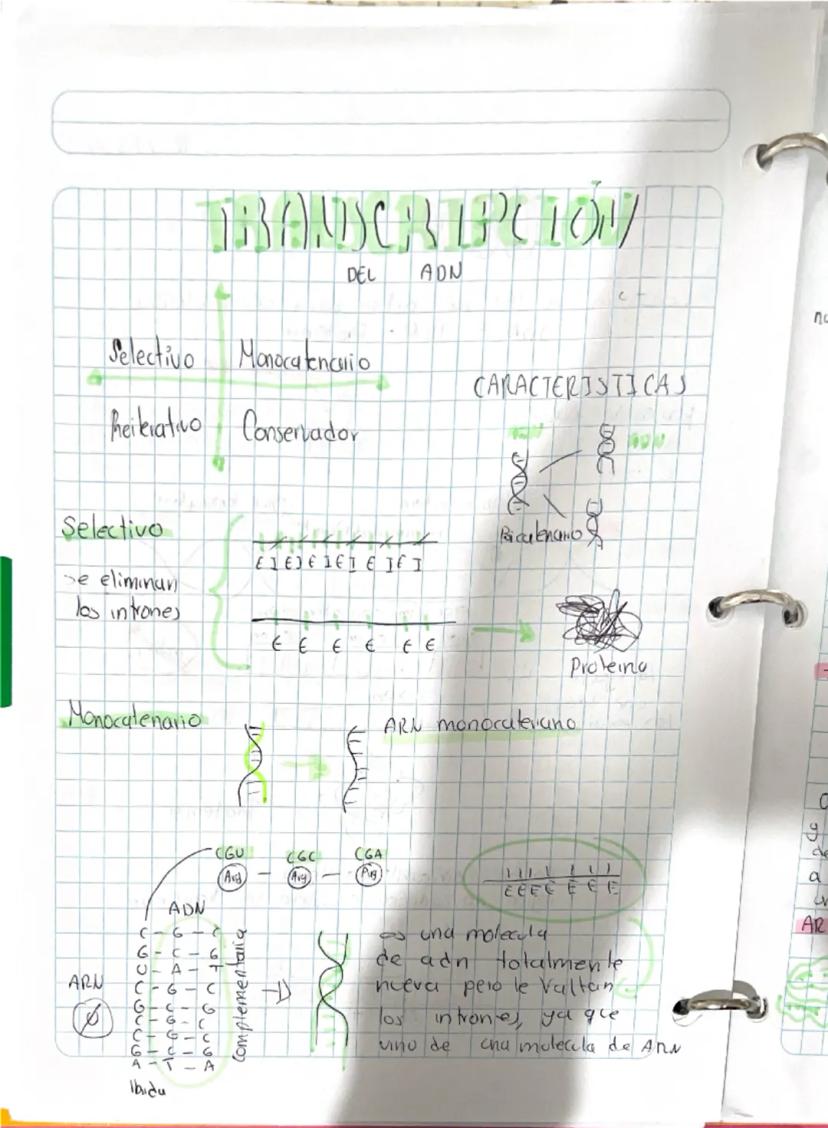 TRANSCRIPCIÓN
DEL ADN
Selectivo Monocatenario
Reiterativo Conservador
CARACTERISTICAS
Bicatenario
Selectivo
Se eliminan
los intrones
E I E I E I E I E I E I
E E E E E E
Proteina
Monocatenario
ARN monocatenario
CGU CGC CGA
Arg - Arg - Arg
E E E E E E E
ADN
ARN
C - G - C
G - C - G
U - A - T
C - G - C
G - C - G
C - G - C
C - G - C
G - C - G
A - T - A
complementaria
es una molecula
de adn totalmente
nueva pero le faltan
los intrones, ya que
vino de una molecula de ARN